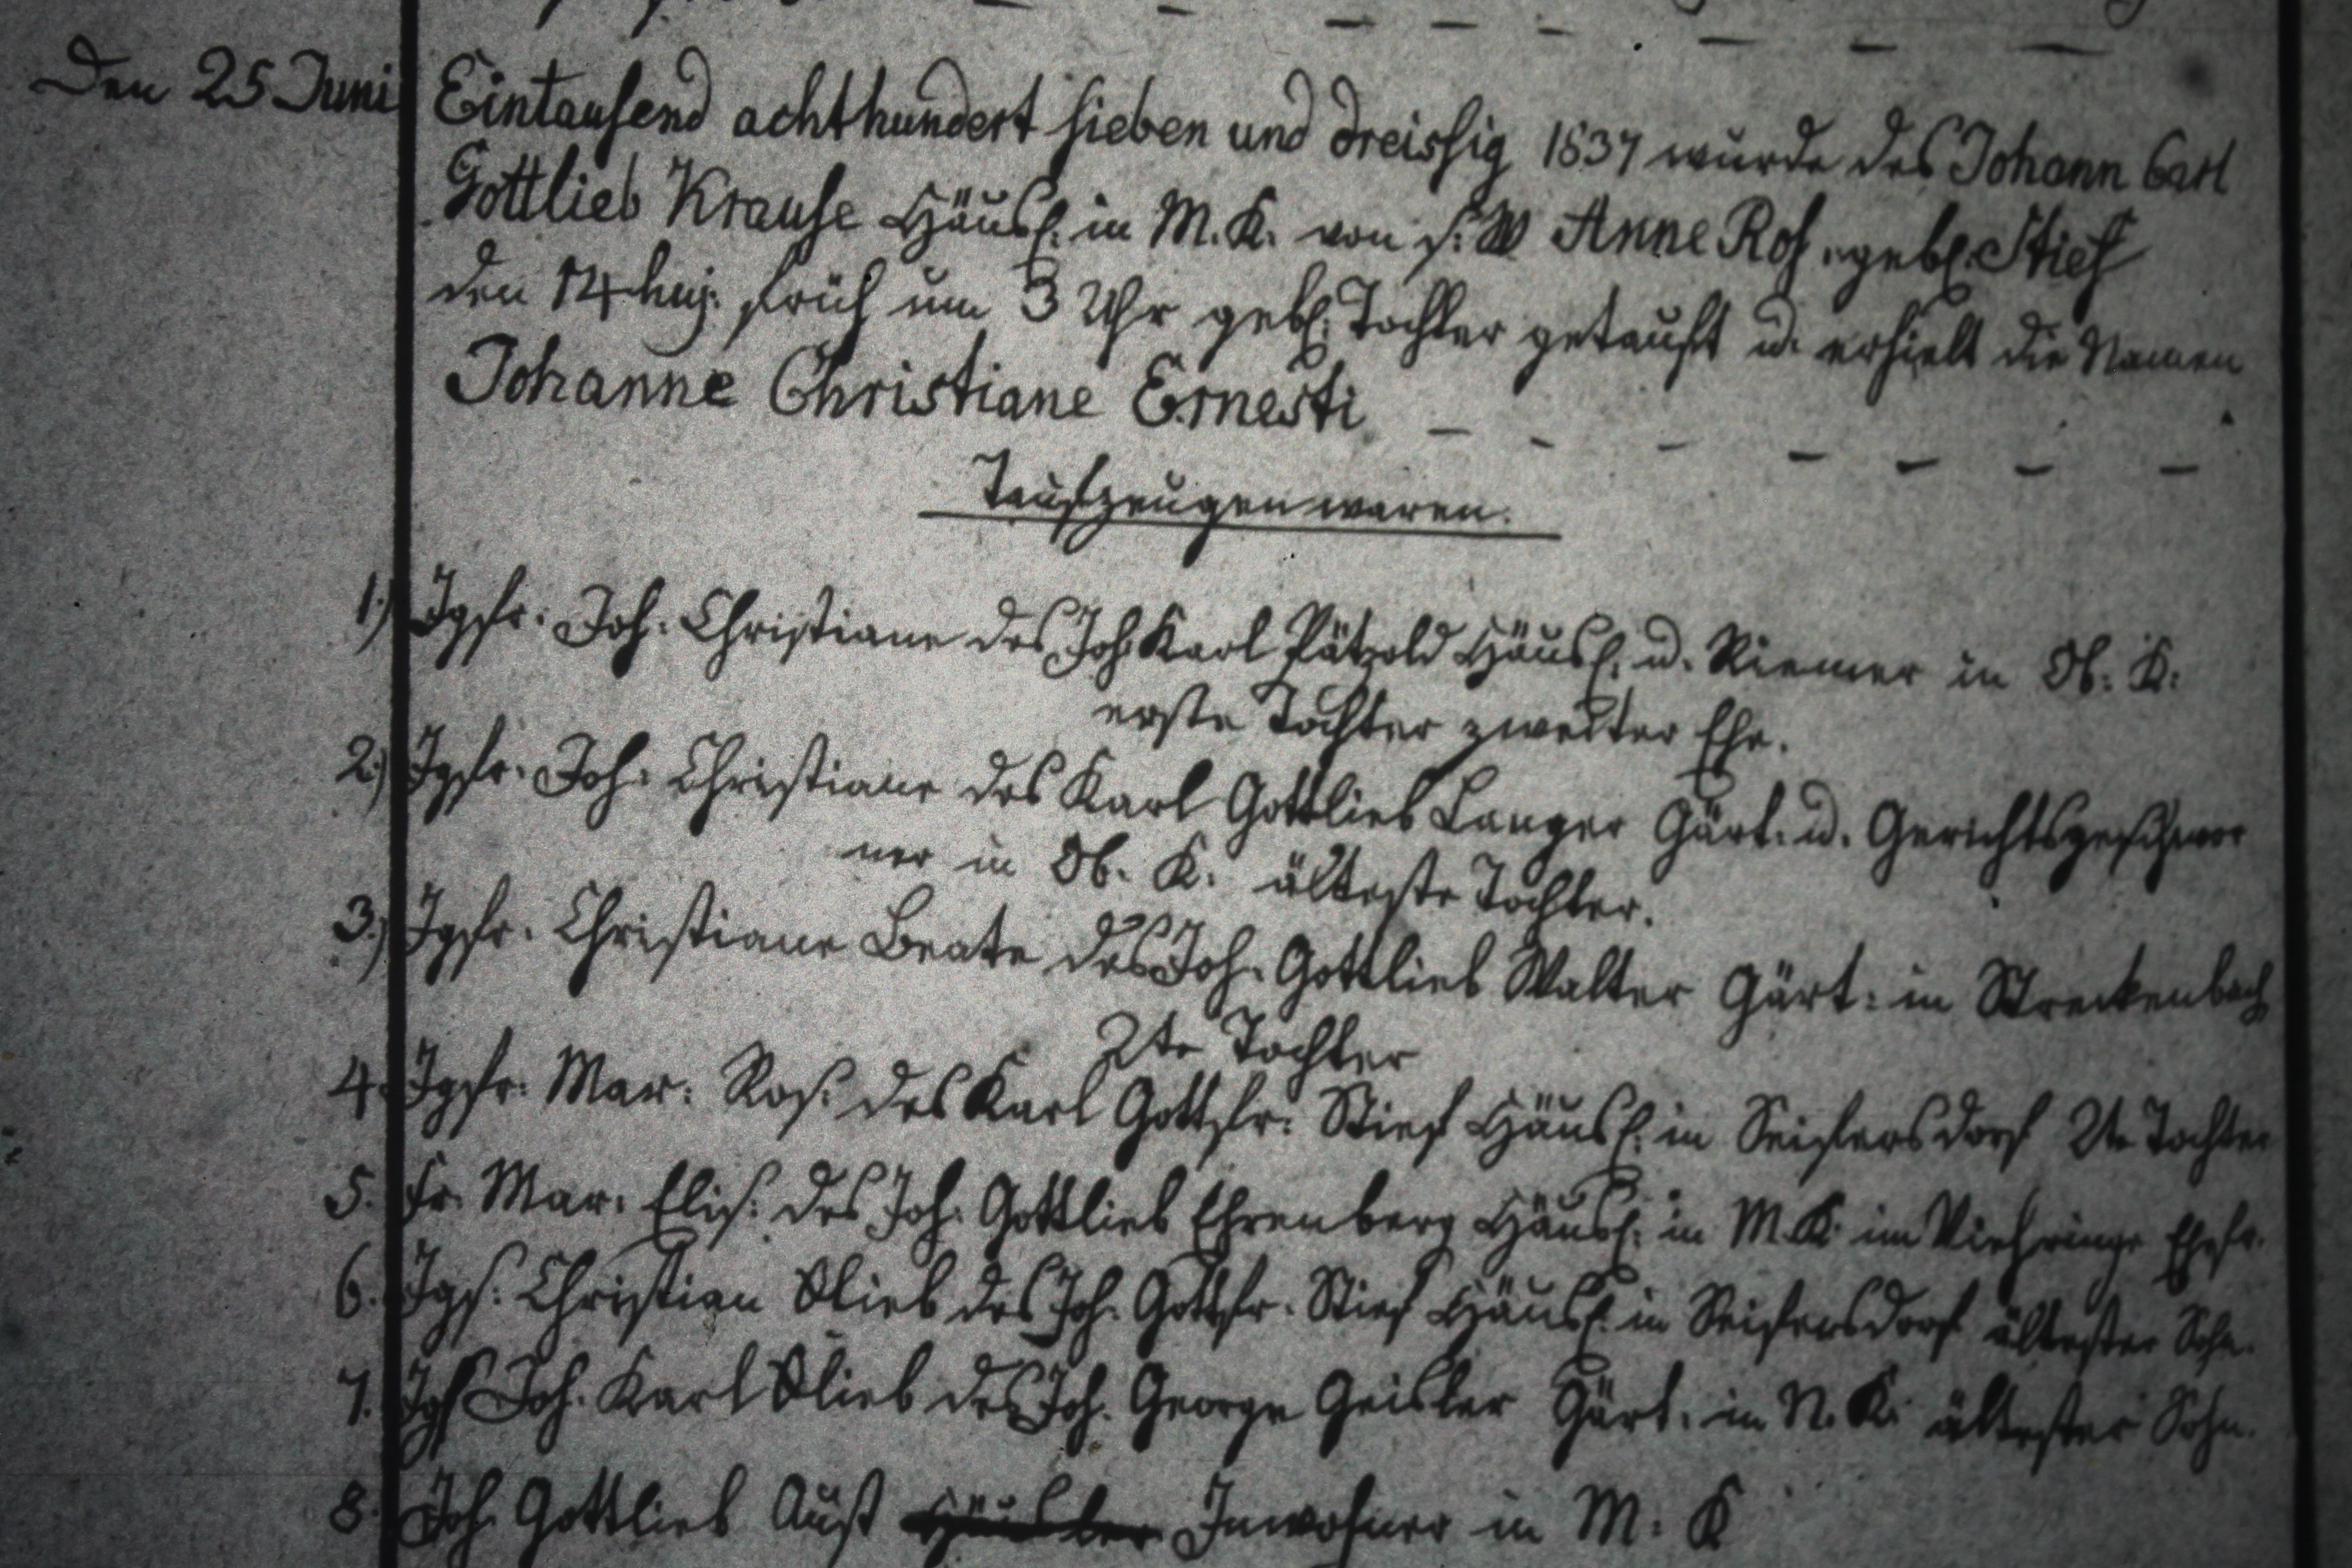 Den 25 Juni Eintausend achthundert sieben und dreissig 1837 wurde des Johann Carl
Gottlieb Krause Häusl. in M. K. von s. W Anne Ros. gebl. Stief
den 14 huj. früh um 3 Uhr gebl. Tochter getauft u. erhielt die Namen
Johanne Christiane Ernesti
Taufzeugen waren.
1.) Jgfr. Joh. Christiane des Joh. Karl Pätzold Häusl. u. Riemer in Ob. K.
erste Tochter zweiter Ehe.
2.) Jgfr. Joh. Christiane des Karl Gottlieb Langer Gärt. u. Gerichtsgeschwor
ner in Ob. K. älteste Tochter.
3.) Jgfr. Christiane Beate des Joh. Gottlieb Walter Gärt. in Streckenbach
2te Tochter
4. Jgfr. Mar. Ros. des Karl Gottfr. Stief Häusl. in Seifersdorf 2te Tochter
5. Fr. Mar. Elis. des Joh. Gottlieb Ehrenberg Häusl. in M. K. im Viehringe Ehefr.
6. Jgs. Christian Glieb des Joh. Gottfr. Stief Häusl. in Seifersdorf ältester Sohn.
7. Jgs Joh. Karl Glieb des Joh. George Geisler Gärt. in N. K. ältester Sohn.
8. Joh. Gottlieb Aust Häusler Inwohner in M. K